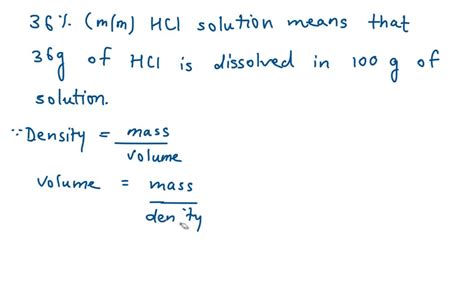 36% (m/m) HCl solution means that
36g of HCl is dissolved in 100 g of
solution.
∵ Density = mass
volume
volume = mass
density